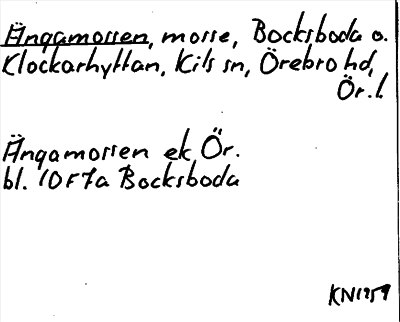 Ängamossen, mosse, Bocksboda o.
Klockarhyttan, Kils sn, Örebro hd,
Ör. l.
Ängamossen ek, Ör.
bl. 10F7a Bocksboda
KN1959